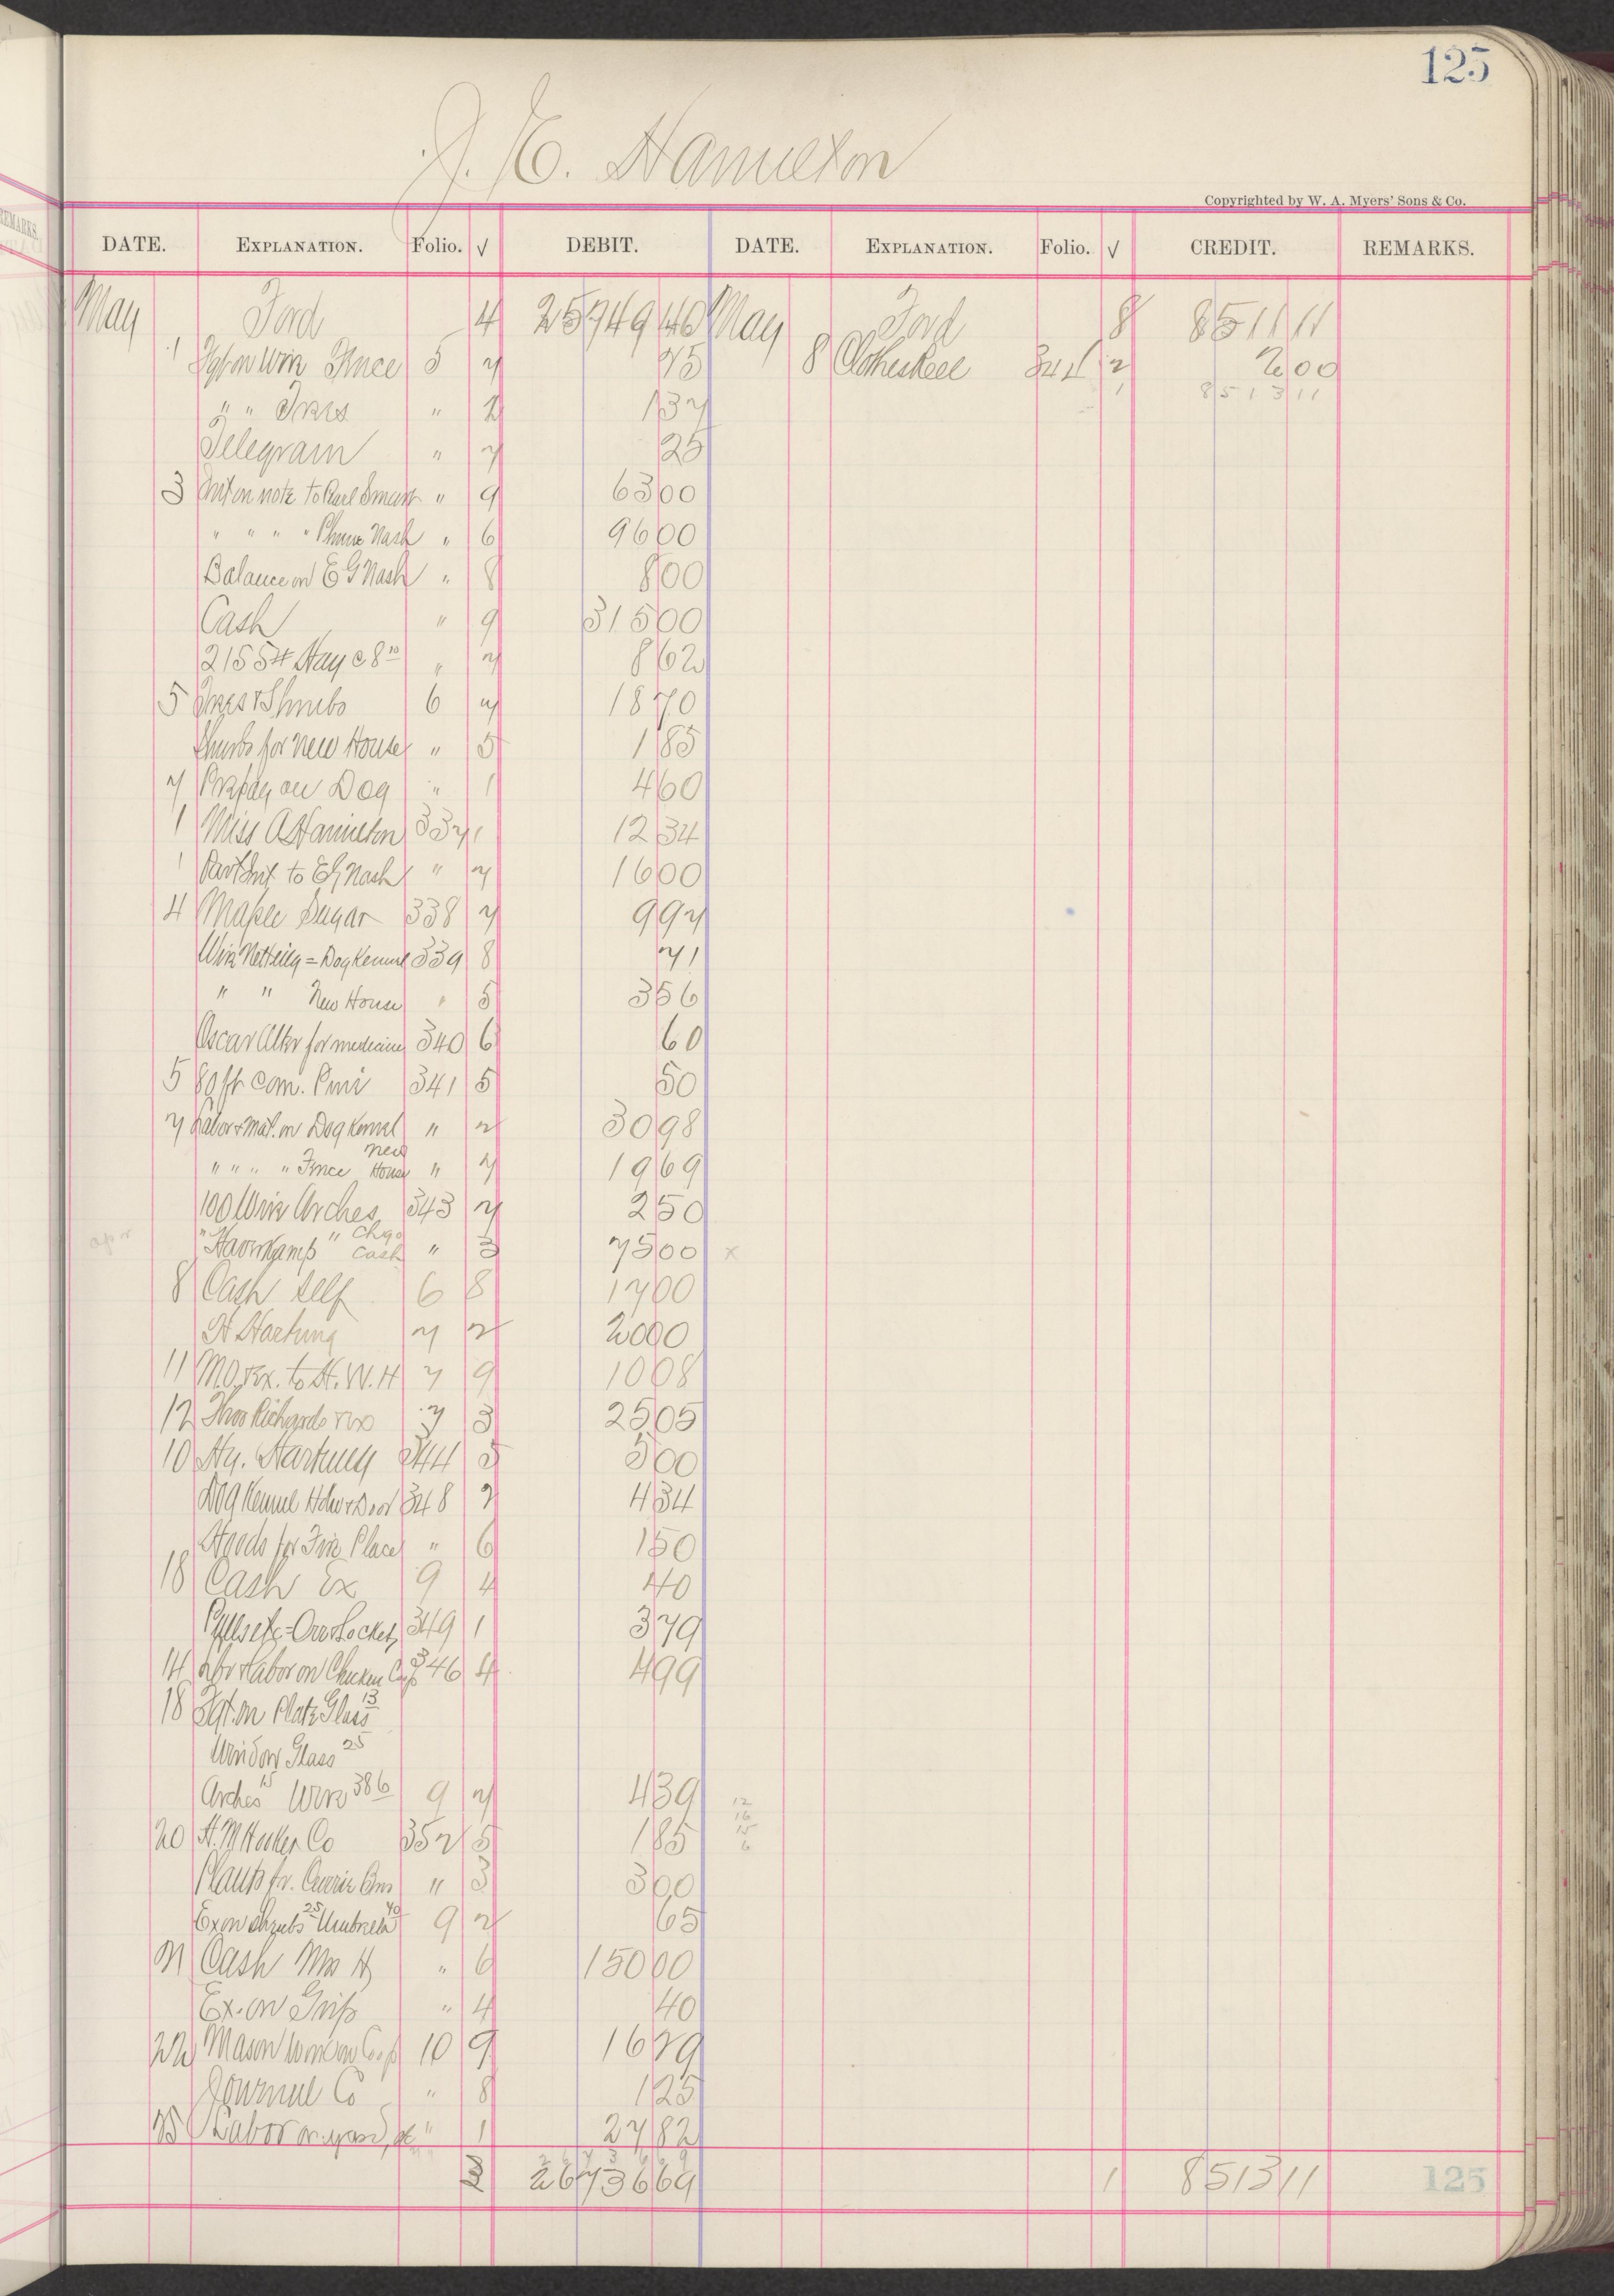 125
J. E. Hamilton
Copyrighted by W. A. Myers' Sons & Co.
REMARKS.
DATE. EXPLANATION. Folio. √ DEBIT. DATE. EXPLANATION. Folio. √ CREDIT. REMARKS.
May Ford 4 25949 40 May Ford 8 8511 11
1 Fgt on Wire Fence 5 7 75 8 Clothes Reel 341 2 2 00
" " Trees " 2 1 37 1 8513 11
Telegram " 7 25
3 Int on note to Smart " 9 63 00
" " " " Nash " 6 96 00
Balance on E G Nash " 8 8 00
Cash " 9 315 00
2155# Hay @ 8 " 7 8 62
5 Trees & Shrubs 6 7 18 70
Shrubs for New House " 5 1 85
7 Prepay on Dog " 1 4 60
1 Miss A Hamilton 337 1 12 34
1 Part Int to EG Nash " 7 16 00
4 Maple Sugar 338 7 9 97
Wire Netting = Dog Kennel 339 8 71
" " New House " 5 3 56
Oscar for medicine 340 6 60
5 80 ft com. Pine 341 5 50
7 Labor & Mat. on Dog Kennel " 2 30 98
" " " " Fence New House " 7 19 69
100 Wire Arches 343 7 2 50
apr " " Chgo Cash " 3 75 00 x
8 Cash Self 6 8 17 00
H Hartung 7 2 20 00
11 M.O. & Ex. to H. W. H 7 9 10 08
12 Thos Richards 7 3 25 05
10 Hy. Hartung 344 5 5 00
Dog Kennel Hdw & Door 348 2 4 34
Hoods for Fire Place " 6 1 50
18 Cash Ex 9 4 40
349 1 3 79
14 Labor on Chicken Coop 346 4 4 99
18 Fgt. on Plate Glass 13
Window Glass 25
Arches 15 Wire 386 9 7 4 39 12
16
15
6
20 H. M Hooker Co 352 5 1 85
Plants fr. Currie Bros " 3 3 00
Ex on Shrubs 25 Umbrella 40 9 2 65
21 Cash Mrs H " 6 150 00
Ex. on Grip " 4 40
22 Mason work on Coop 10 9 16 29
Journal Co " 8 1 25
25 Labor on yard, &c " 1 27 82
3 26736 69 1 8513 11
125